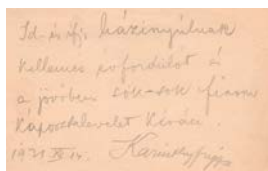 Id. és ifj. házinyúlnak
kellemes évfordulót és
a jövőben sok-sok finom
káposztalevelet kíván:
1931 IV 14. Karinthy Frigyes